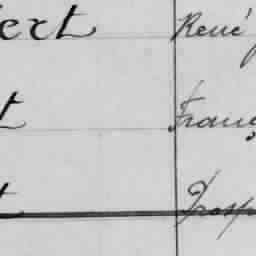 ert René
t Franç
t Prosp